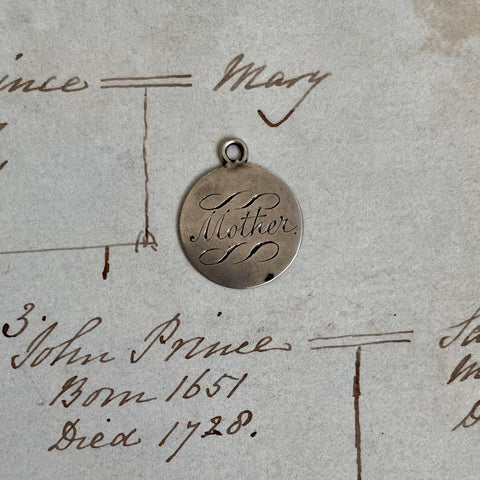 Mary
Mother.
3.
John Prince
Born 1651
Died 1728.